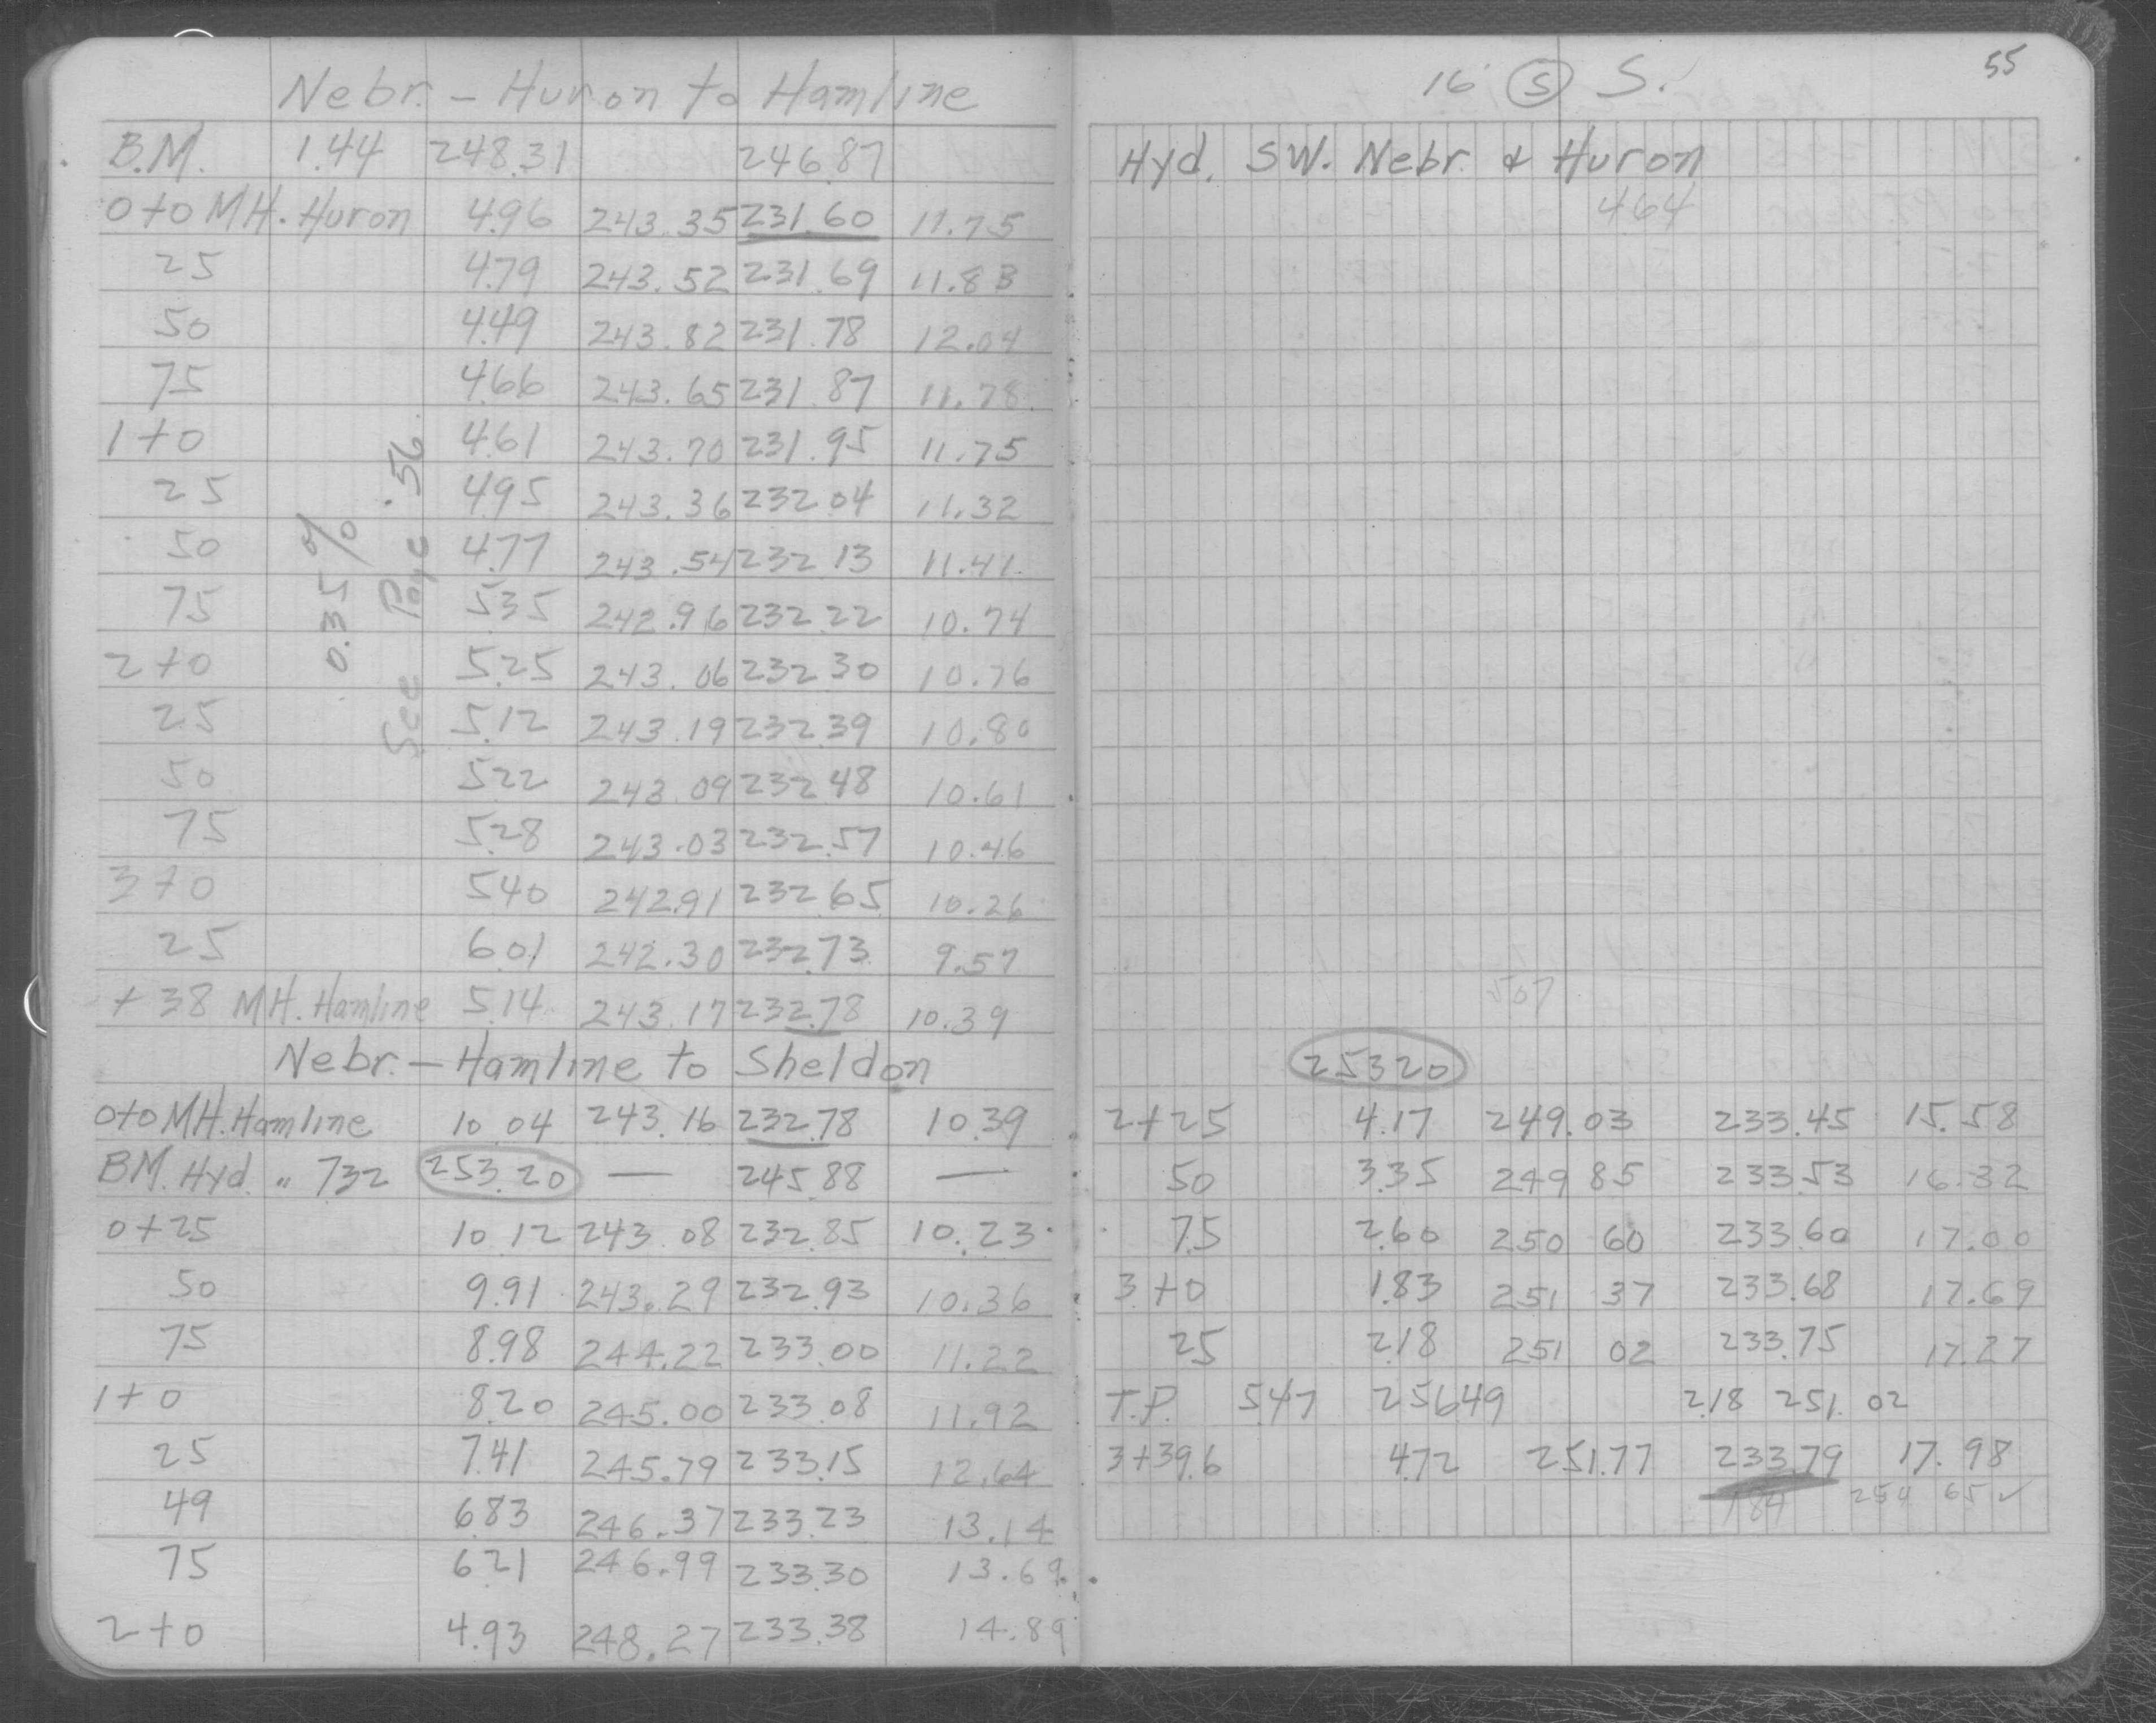 Nebr. - Huron to Hamline
B.M. 1.44 248.31 246.87
0+0 MH. Huron 4.96 243.35 231.60 11.75
25 4.79 243.52 231.69 11.83
50 4.49 243.82 231.78 12.04
75 4.66 243.65 231.87 11.78
1+0 4.61 243.70 231.95 11.75
25 4.95 243.36 232.04 11.32
50 4.77 243.54 232.13 11.41
75 5.35 242.96 232.22 10.74
2+0 5.25 243.06 232.30 10.76
25 5.12 243.19 232.39 10.80
50 5.22 243.09 232.48 10.61
75 5.28 243.03 232.57 10.46
3+0 5.40 242.91 232.65 10.26
25 6.01 242.30 232.73 9.57
+38 MH. Hamline 5.14 243.17 232.78 10.39
0.35%
See Page 56.
Nebr. - Hamline to Sheldon
0+0 MH. Hamline 10.04 243.16 232.78 10.39
BM. Hyd. " 7.32 253.20 — 245.88 —
0+25 10.12 243.08 232.85 10.23
50 9.91 243.29 232.93 10.36
75 8.98 244.22 233.00 11.22
1+0 8.20 245.00 233.08 11.92
25 7.41 245.79 233.15 12.64
49 6.83 246.37 233.23 13.14
75 6.21 246.99 233.30 13.69
2+0 4.93 248.27 233.38 14.89
16 S S.
55
Hyd. SW. Nebr. & Huron
464
507
253 20
2+25 4.17 249.03 233.45 15.58
50 3.35 249 85 233.53 16.32
75 2.60 250 60 233.60 17.00
3+0 1.83 251 37 233.68 17.69
25 2.18 251 02 233.75 17.27
T.P. 5.47 256.49 2.18 251.02
3+39.6 4.72 251.77 233.79 17.98
184 254 65 ✓